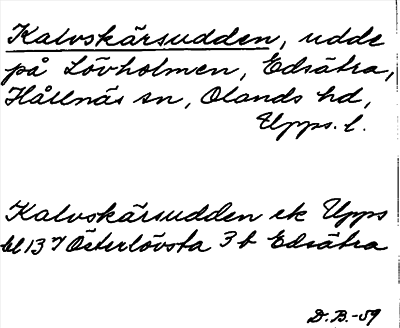 Kalvskärsudden, udde
på Lövholmen, Edsätra,
Hållnäs sn, Olands hd,
Upps. l.
Kalvskärsudden ek Upps
bl 13 7 Österlövsta 3 b Edsätra
D.B.-59